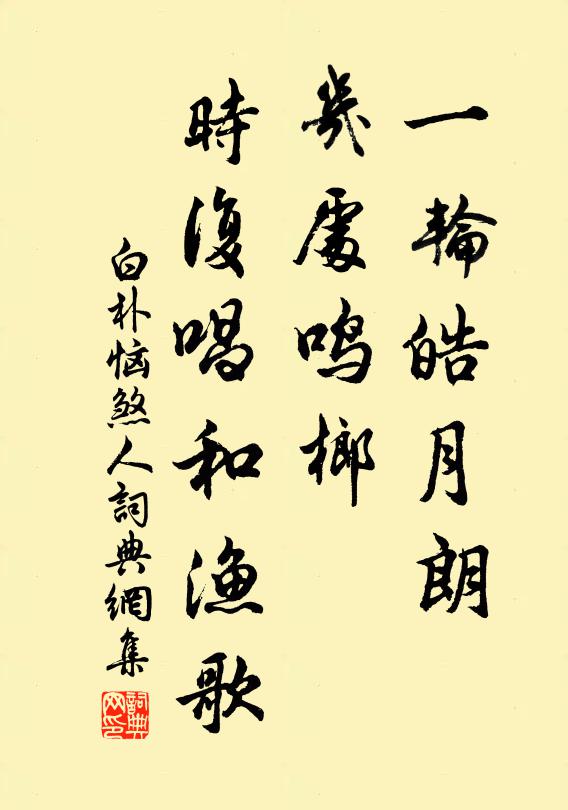 一輪皓月朗
幾處鳴榔
時復唱和漁歌
白朴恼煞人詞典網集
詞典网印